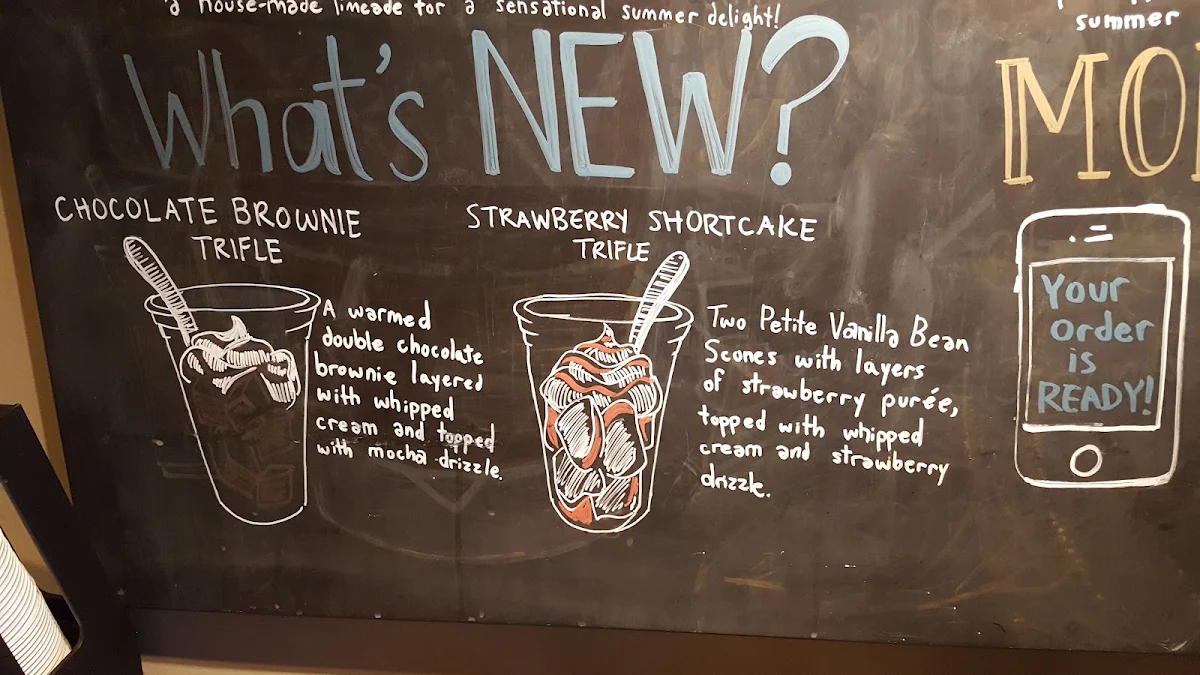 a house-made limeade for a sensational summer delight!
summer
What's NEW?
CHOCOLATE BROWNIE
TRIFLE
A warmed
double chocolate
brownie layered
with whipped
cream and topped
with mocha drizzle.
STRAWBERRY SHORTCAKE
TRIFLE
Two Petite Vanilla Bean
Scones with layers
of strawberry purée,
topped with whipped
cream and strawberry
drizzle.
Your
order
is
READY!